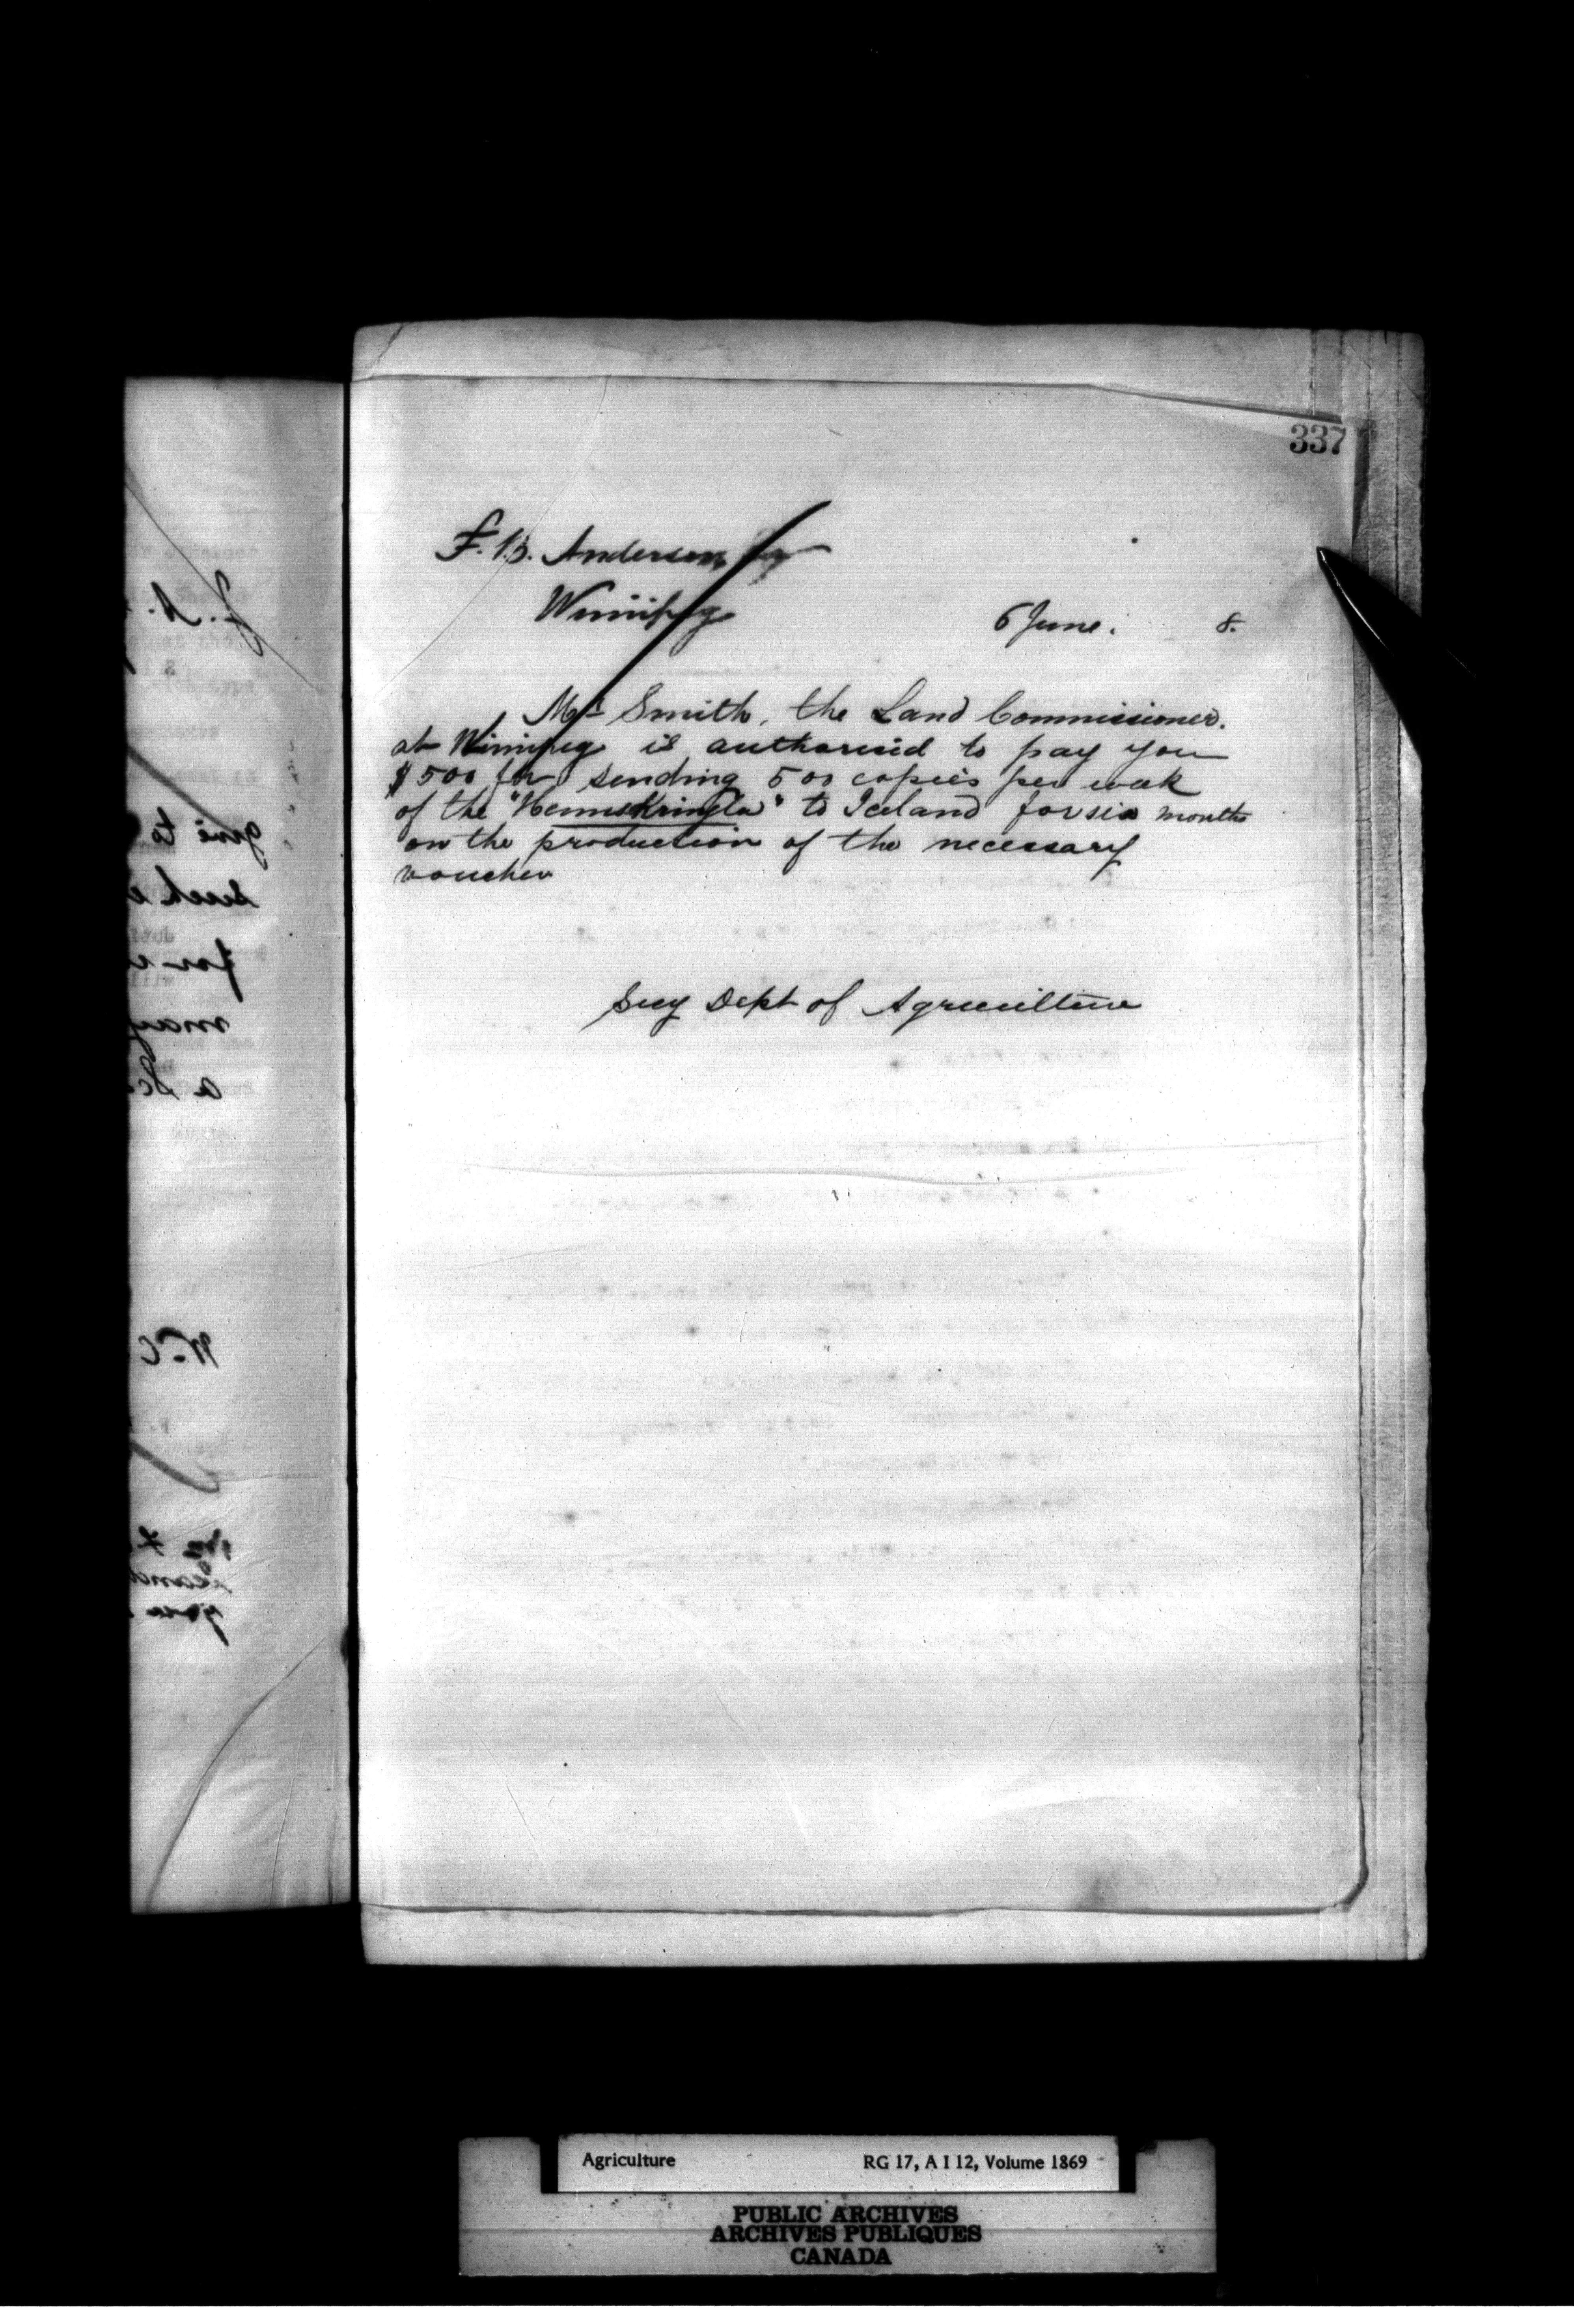 337
F. B. Anderson
Winnipeg
6 June. 8.
Mr Smith, the Land Commissioner.
at Winnipeg is authorised to pay you
$500 for sending 500 copies per week
of the "Heimskringla" to Iceland for six months
on the production of the necessary
voucher
Secy Dept of Agriculture
give to
such
for
may
a
Agriculture RG 17, A I 12, Volume 1869
PUBLIC ARCHIVES
ARCHIVES PUBLIQUES
CANADA